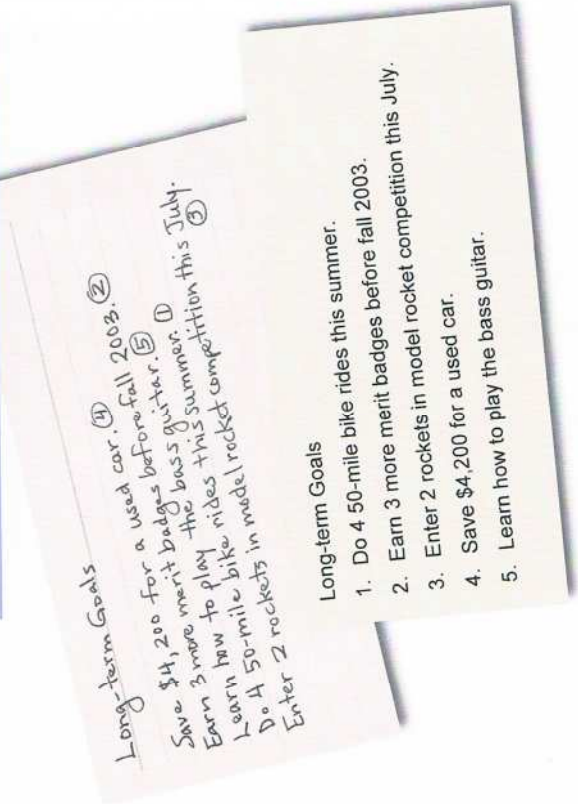 Long-term Goals
Save $4,200 for a used car. ④
Earn 3 more merit badges before fall 2003. ②
Learn how to play the bass guitar. ⑤
Do 4 50-mile bike rides this summer. ①
Enter 2 rockets in model rocket competition this July. ③
Long-term Goals
1. Do 4 50-mile bike rides this summer.
2. Earn 3 more merit badges before fall 2003.
3. Enter 2 rockets in model rocket competition this July.
4. Save $4,200 for a used car.
5. Learn how to play the bass guitar.